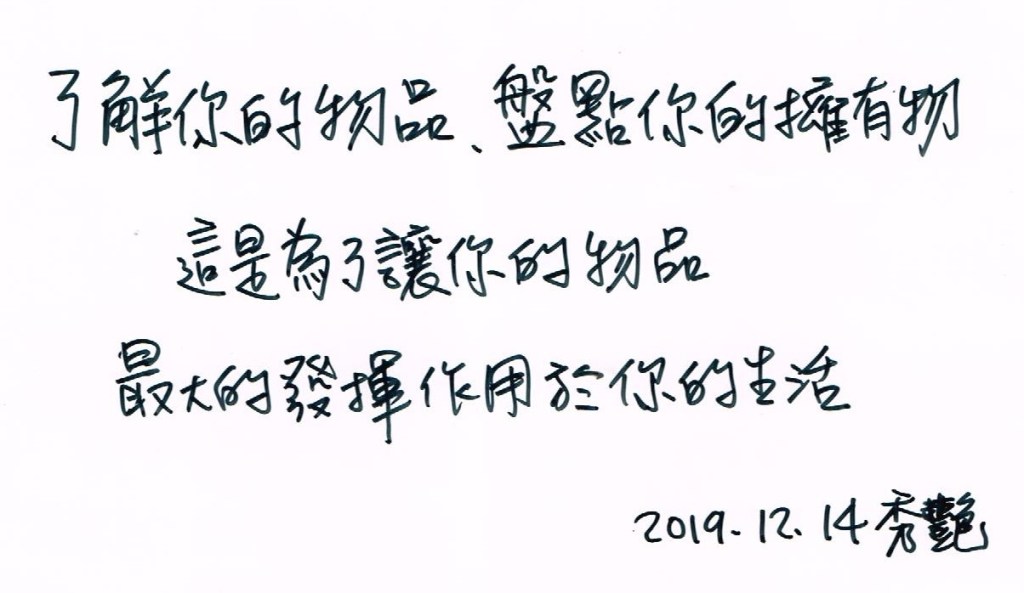 了解你的物品、盤點你的擁有物
這是為了讓你的物品
最大的發揮作用於你的生活
2019.12.14 秀艷